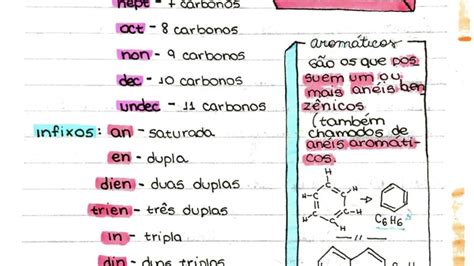 hept - 7 carbonos
oct - 8 carbonos
non - 9 carbonos
dec - 10 carbonos
undec - 11 carbonos
infixos: an - saturada
en - dupla
dien - duas duplas
trien - três duplas
in - tripla
diin - duas triplas
aromáticos
são os que pos
suem um ou
mais anéis ben
zênicos
(também
chamados de
anéis aromáti-
cos.
H
H
H
H
H
H
C
C
C
C
C
C
C6H6